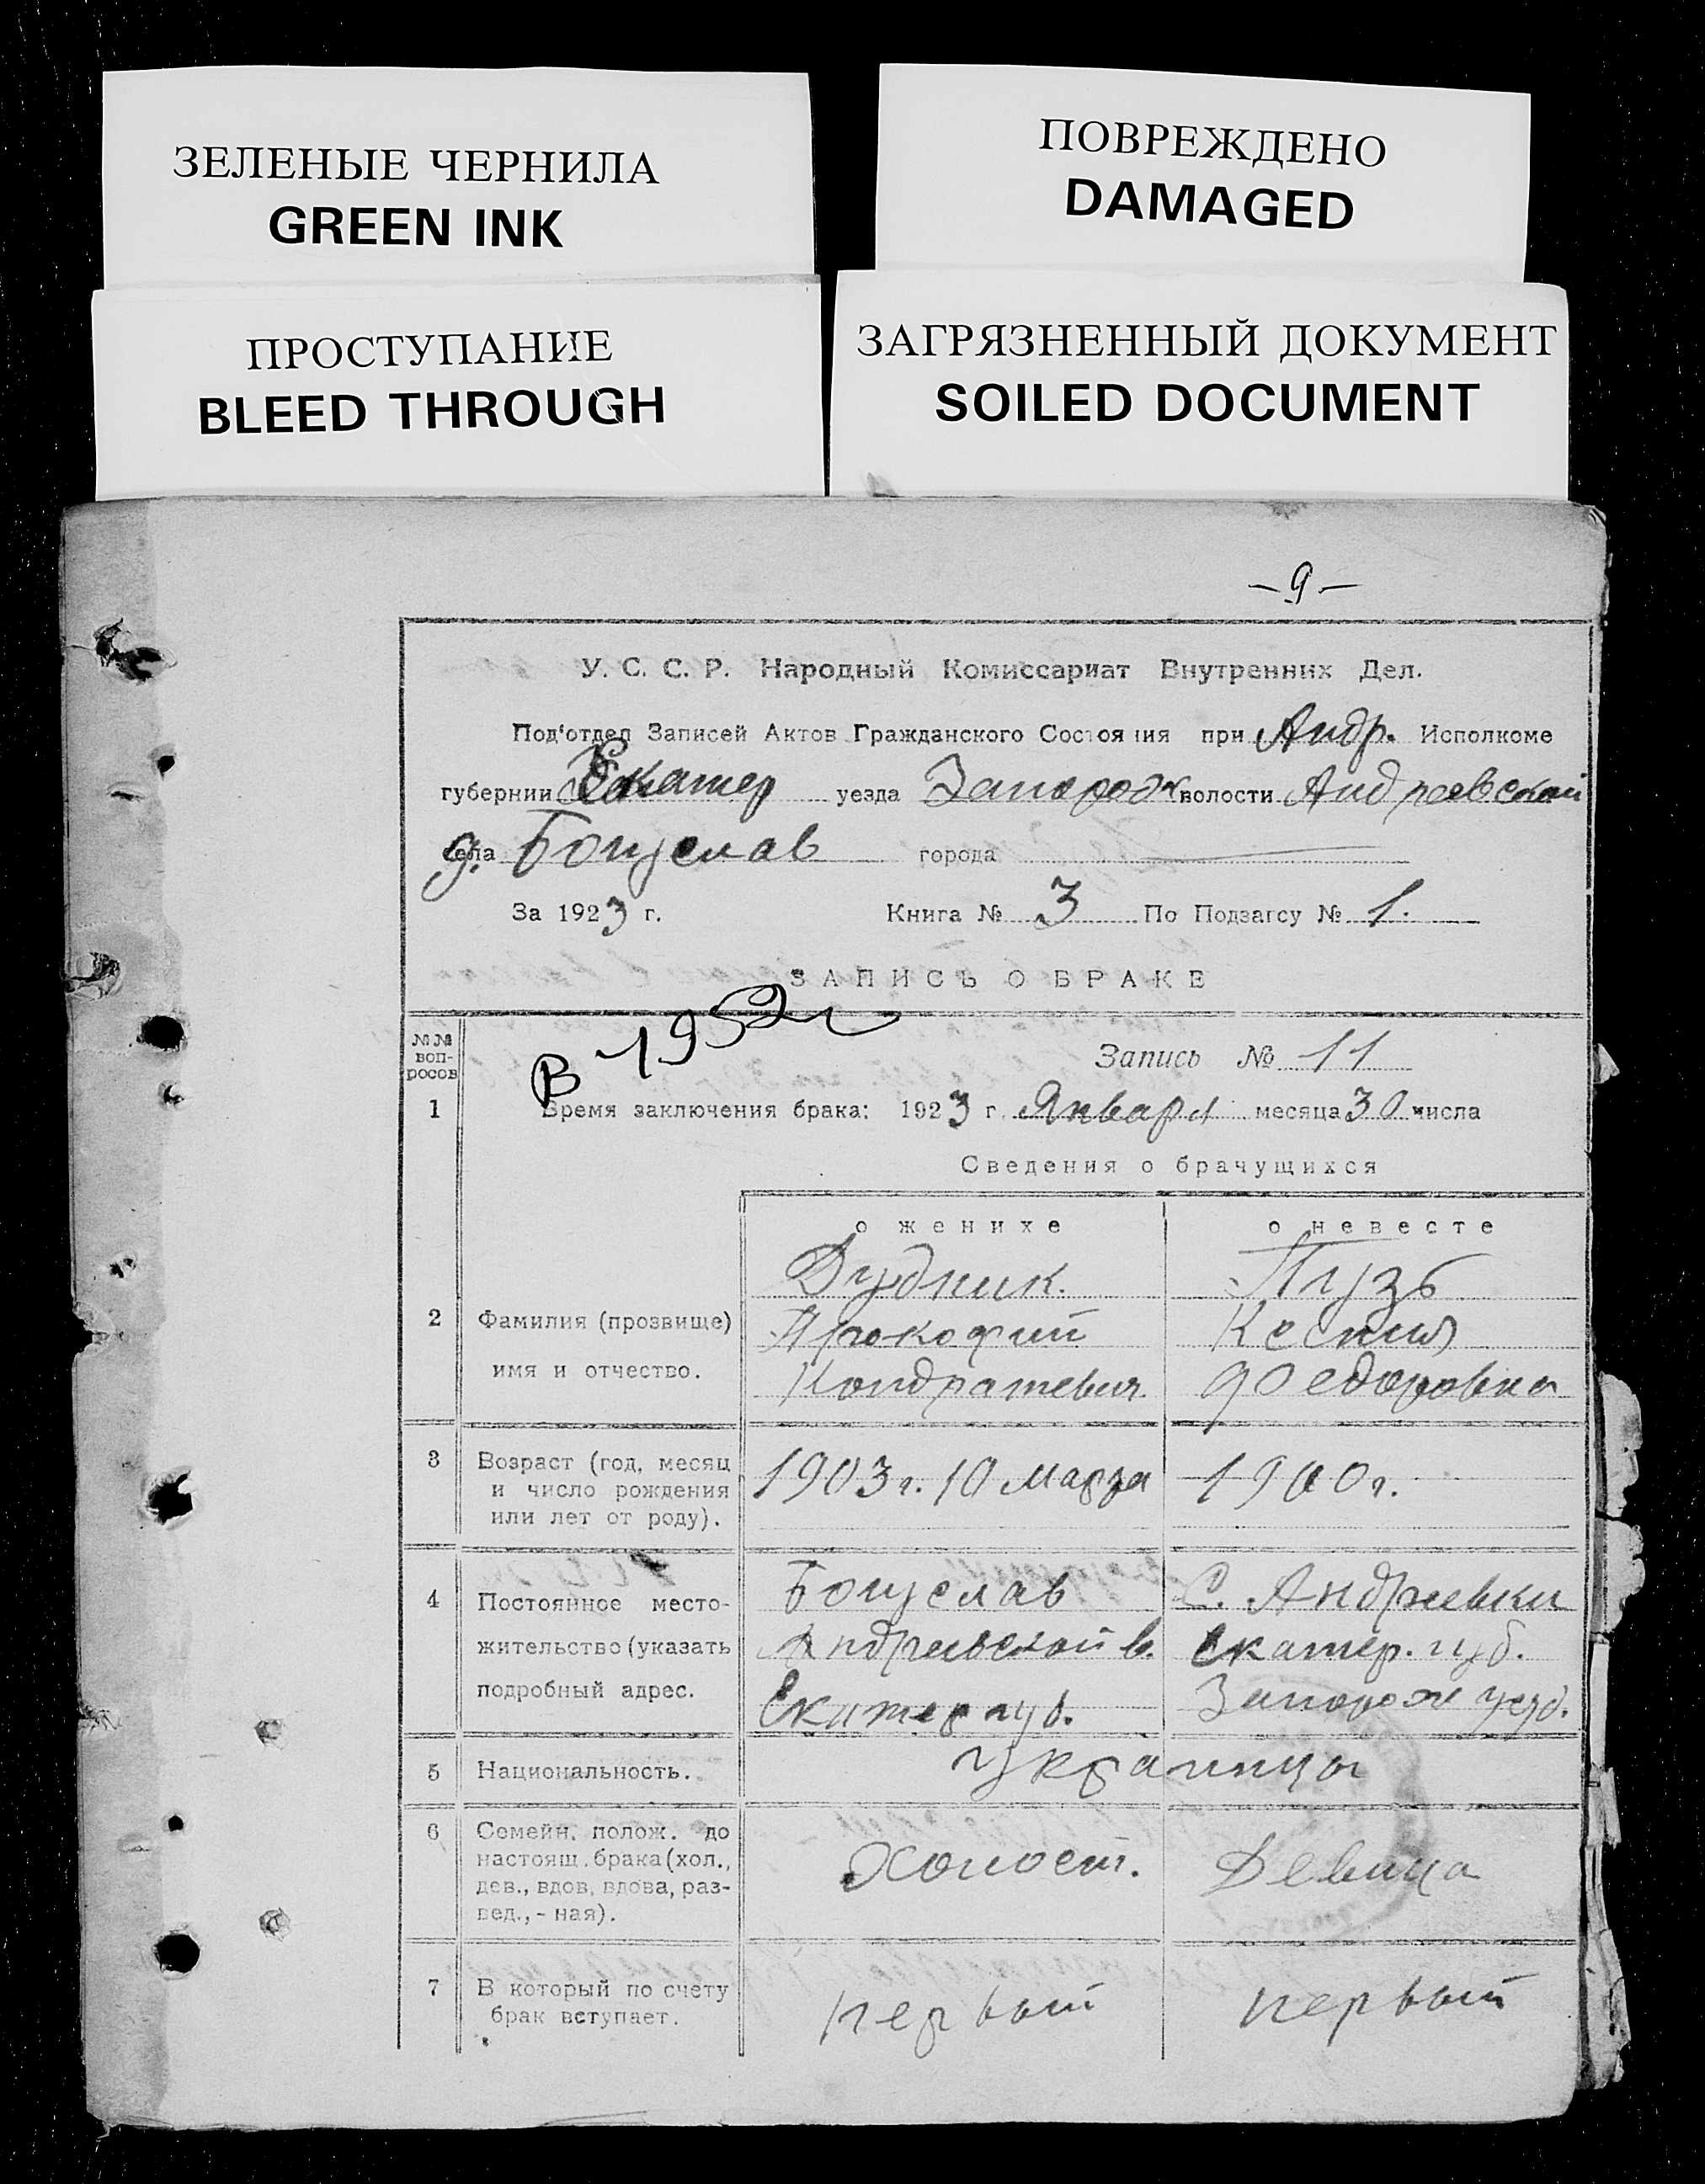 ЗЕЛЕНЫЕ ЧЕРНИЛА
GREEN INK
ПОВРЕЖДЕНО
DAMAGED
ПРОСТУПАНИЕ
BLEED THROUGH
ЗАГРЯЗНЕННЫЙ ДОКУМЕНТ
SOILED DOCUMENT
– 9 –
У. С. С. Р. Народный Комиссариат Внутренних Дел.
Под'отдел Записей Актов Гражданского Состояния при Андр. Исполкоме
губернии Екатер уезда Запорож волости Андреевской
села д. Богуслав города
За 1923 г. Книга № 3 По Подзагсу № 1.
ЗАПИСЬ О БРАКЕ
В 1952
№№ воп-росов
Запись № 11
1 Время заключения брака: 1923 г. Января месяца 30 числа
Сведения о брачущихся
о женихе о невесте
Дудник. Пузь
2 Фамилия (прозвище) Прокофий Ксения
имя и отчество. Кондратевич Федоровна
3 Возраст (год, месяц 1903 г. 10 марта 1900 г.
и число рождения
или лет от роду).
4 Постоянное место- Богуслав С. Андреевки
жительство (указать Андреевской в. Екатер. губ.
подробный адрес. Екатер губ. Запорож уезд.
5 Национальность. украинцы
6 Семейн. полож. до
настоящ. брака (хол., Холост. Девица
дев., вдов, вдова, раз-
вед., - ная).
7 В который по счету первый первый
брак вступает.